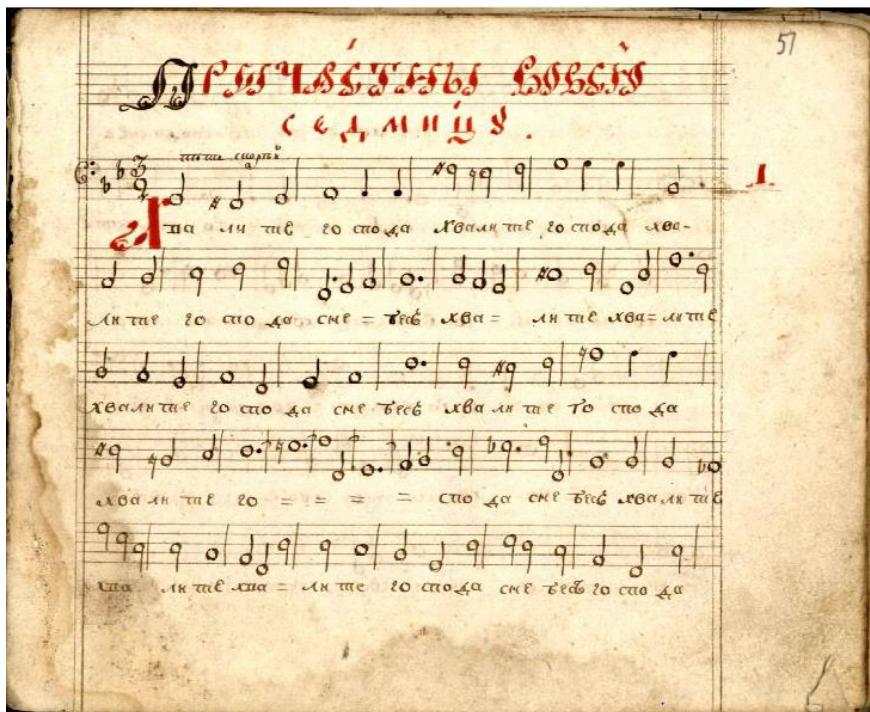 51
Причастны вовсю
седмицу.
1
Хвалите господа хвалите господа хва-
лите господа снебесъ хва= лите хва=лите
хвалите господа снебесъ хвалите господа
хвалите го = = = = спода снебесъ хвалите
хвалите хва= лите господа снебесъ господа